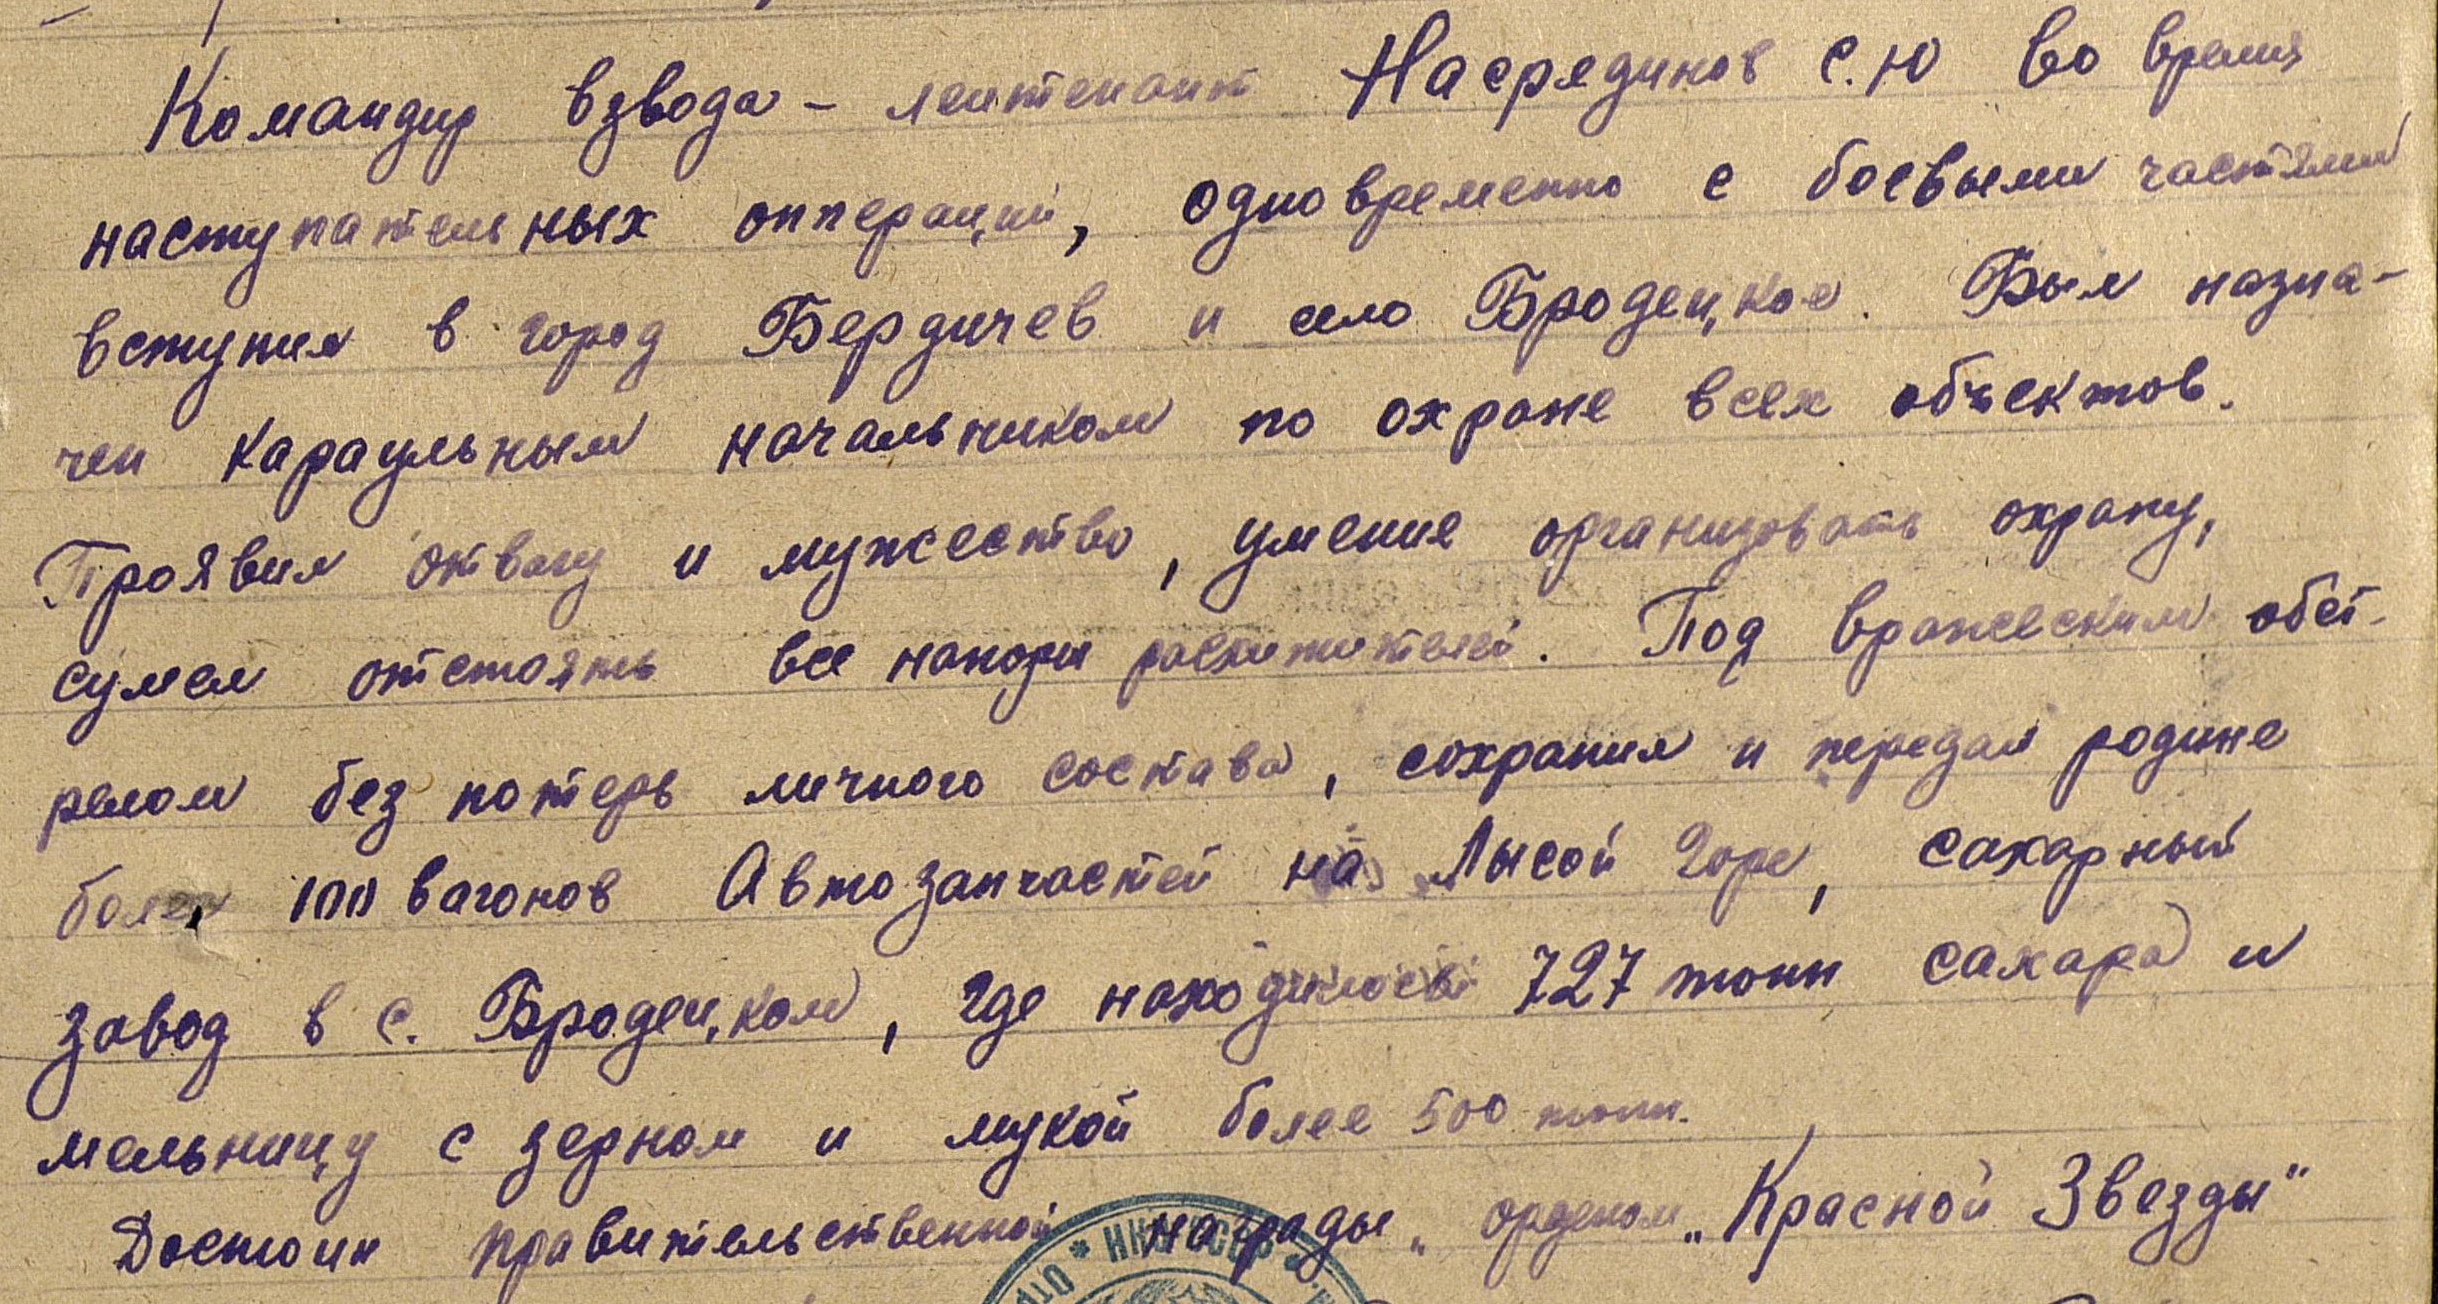 Командир взвода – лейтенант Насрединов С.Ю во время
наступательных опперации, одновременно с боевыми частями
вступил в город Бердичев и село Бродецкое. Был назна-
чен караульным начальником по охране всех объектов.
Проявил отвагу и мужество, умение организовать охрану,
сумел отстоять все напоры расхитителей. Под вражеским обст-
релом без потерь личного состава, сохранил и передал родине
более 100 вагонов Автозапчастей на Лысой Горе, сахарный
завод в с. Бродецком, где находилось 727 тонн сахара и
мельницу с зерном и мукой более 500 тонн.
Достоин правительственной награды „ орденом „Красной Звезды"